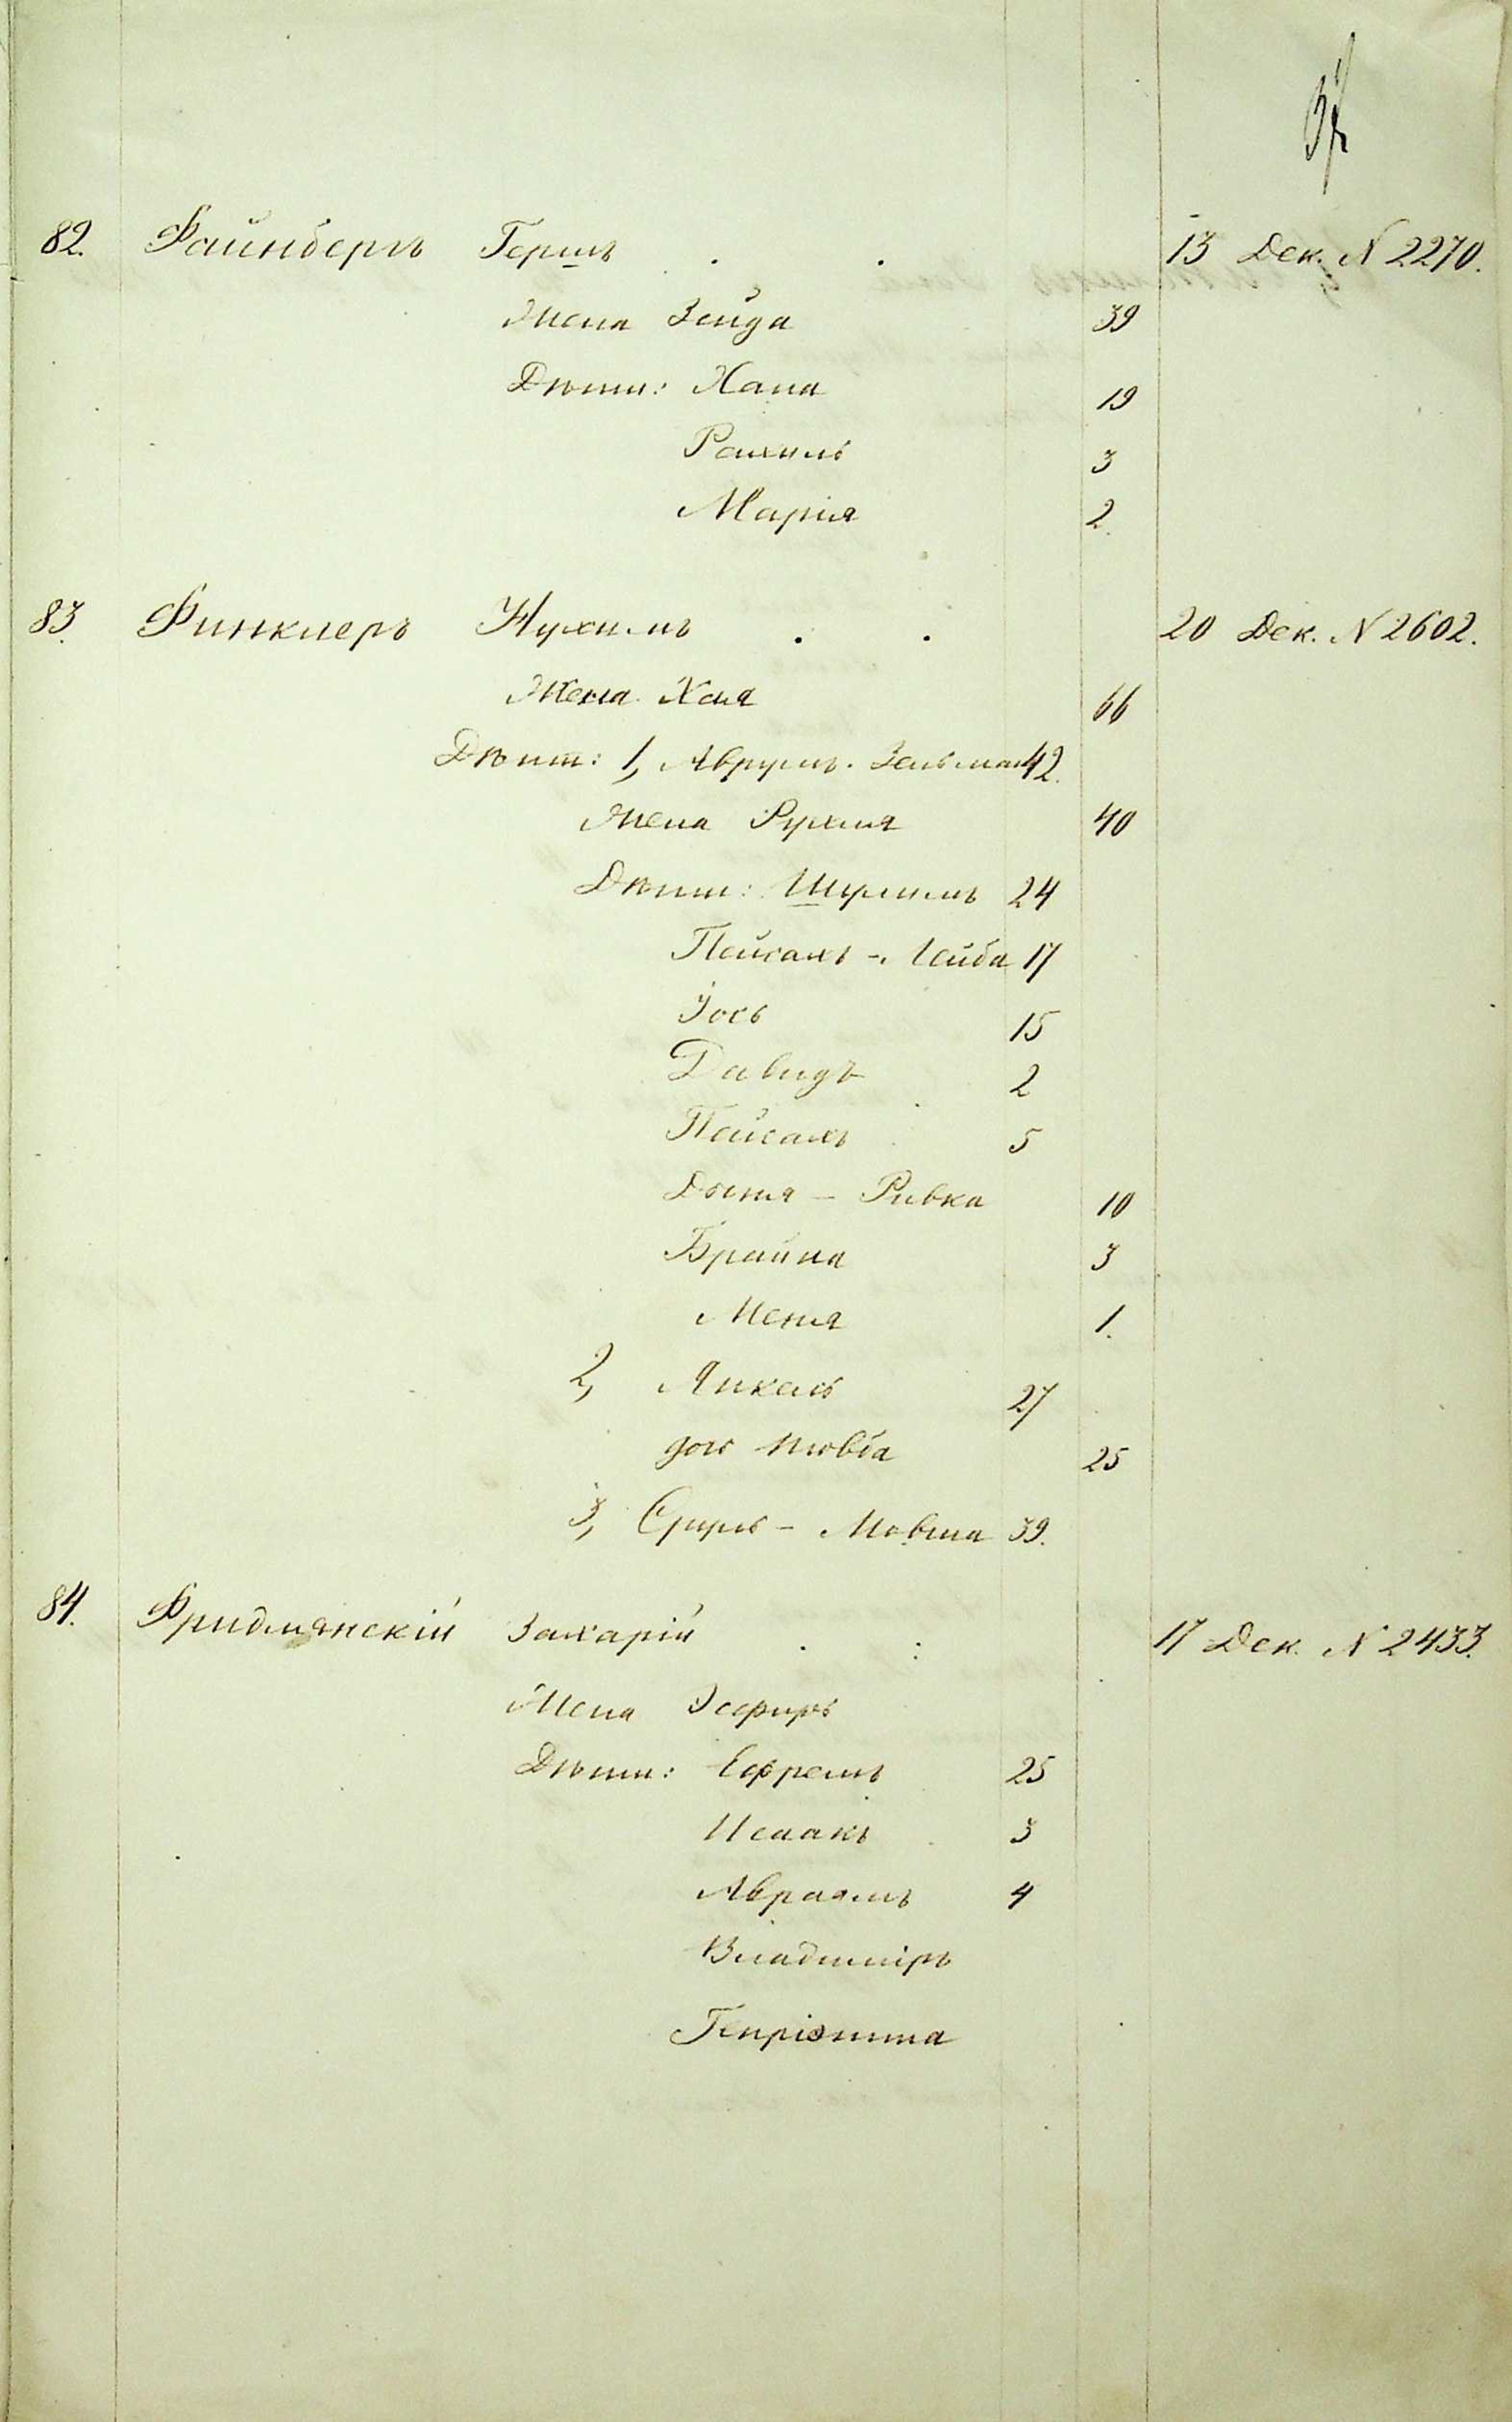 82. Файнбергъ Гершъ . . 13 Дек. N 2270.
Жена Зейда 39
Дѣти: Хана 19
Рахиль 3
Марія 2.
83. Финклеръ Нухимъ . . 20 Дек. N 2602.
Жена Хая 66
Дѣти: 1, Аврумъ-Зельман 42.
Жена Рухля 40
Дѣти: Шулимъ 24
Пейсахъ - Лейба 17
Іось 15
Давидъ 2
Пейсахъ 5
Доня - Ривка 10
Брайна 3
Меня 1.
2, Янкель 27
дочь Любва 25
3, Сруль - Мовша 39.
84. Фридлянскій Захарій . : 17 Дек. N 2433.
Жена Эсфирь
Дѣти: Ефремъ 25
Исаакъ 3
Авраамъ 4
Владиміръ
Генріэтта